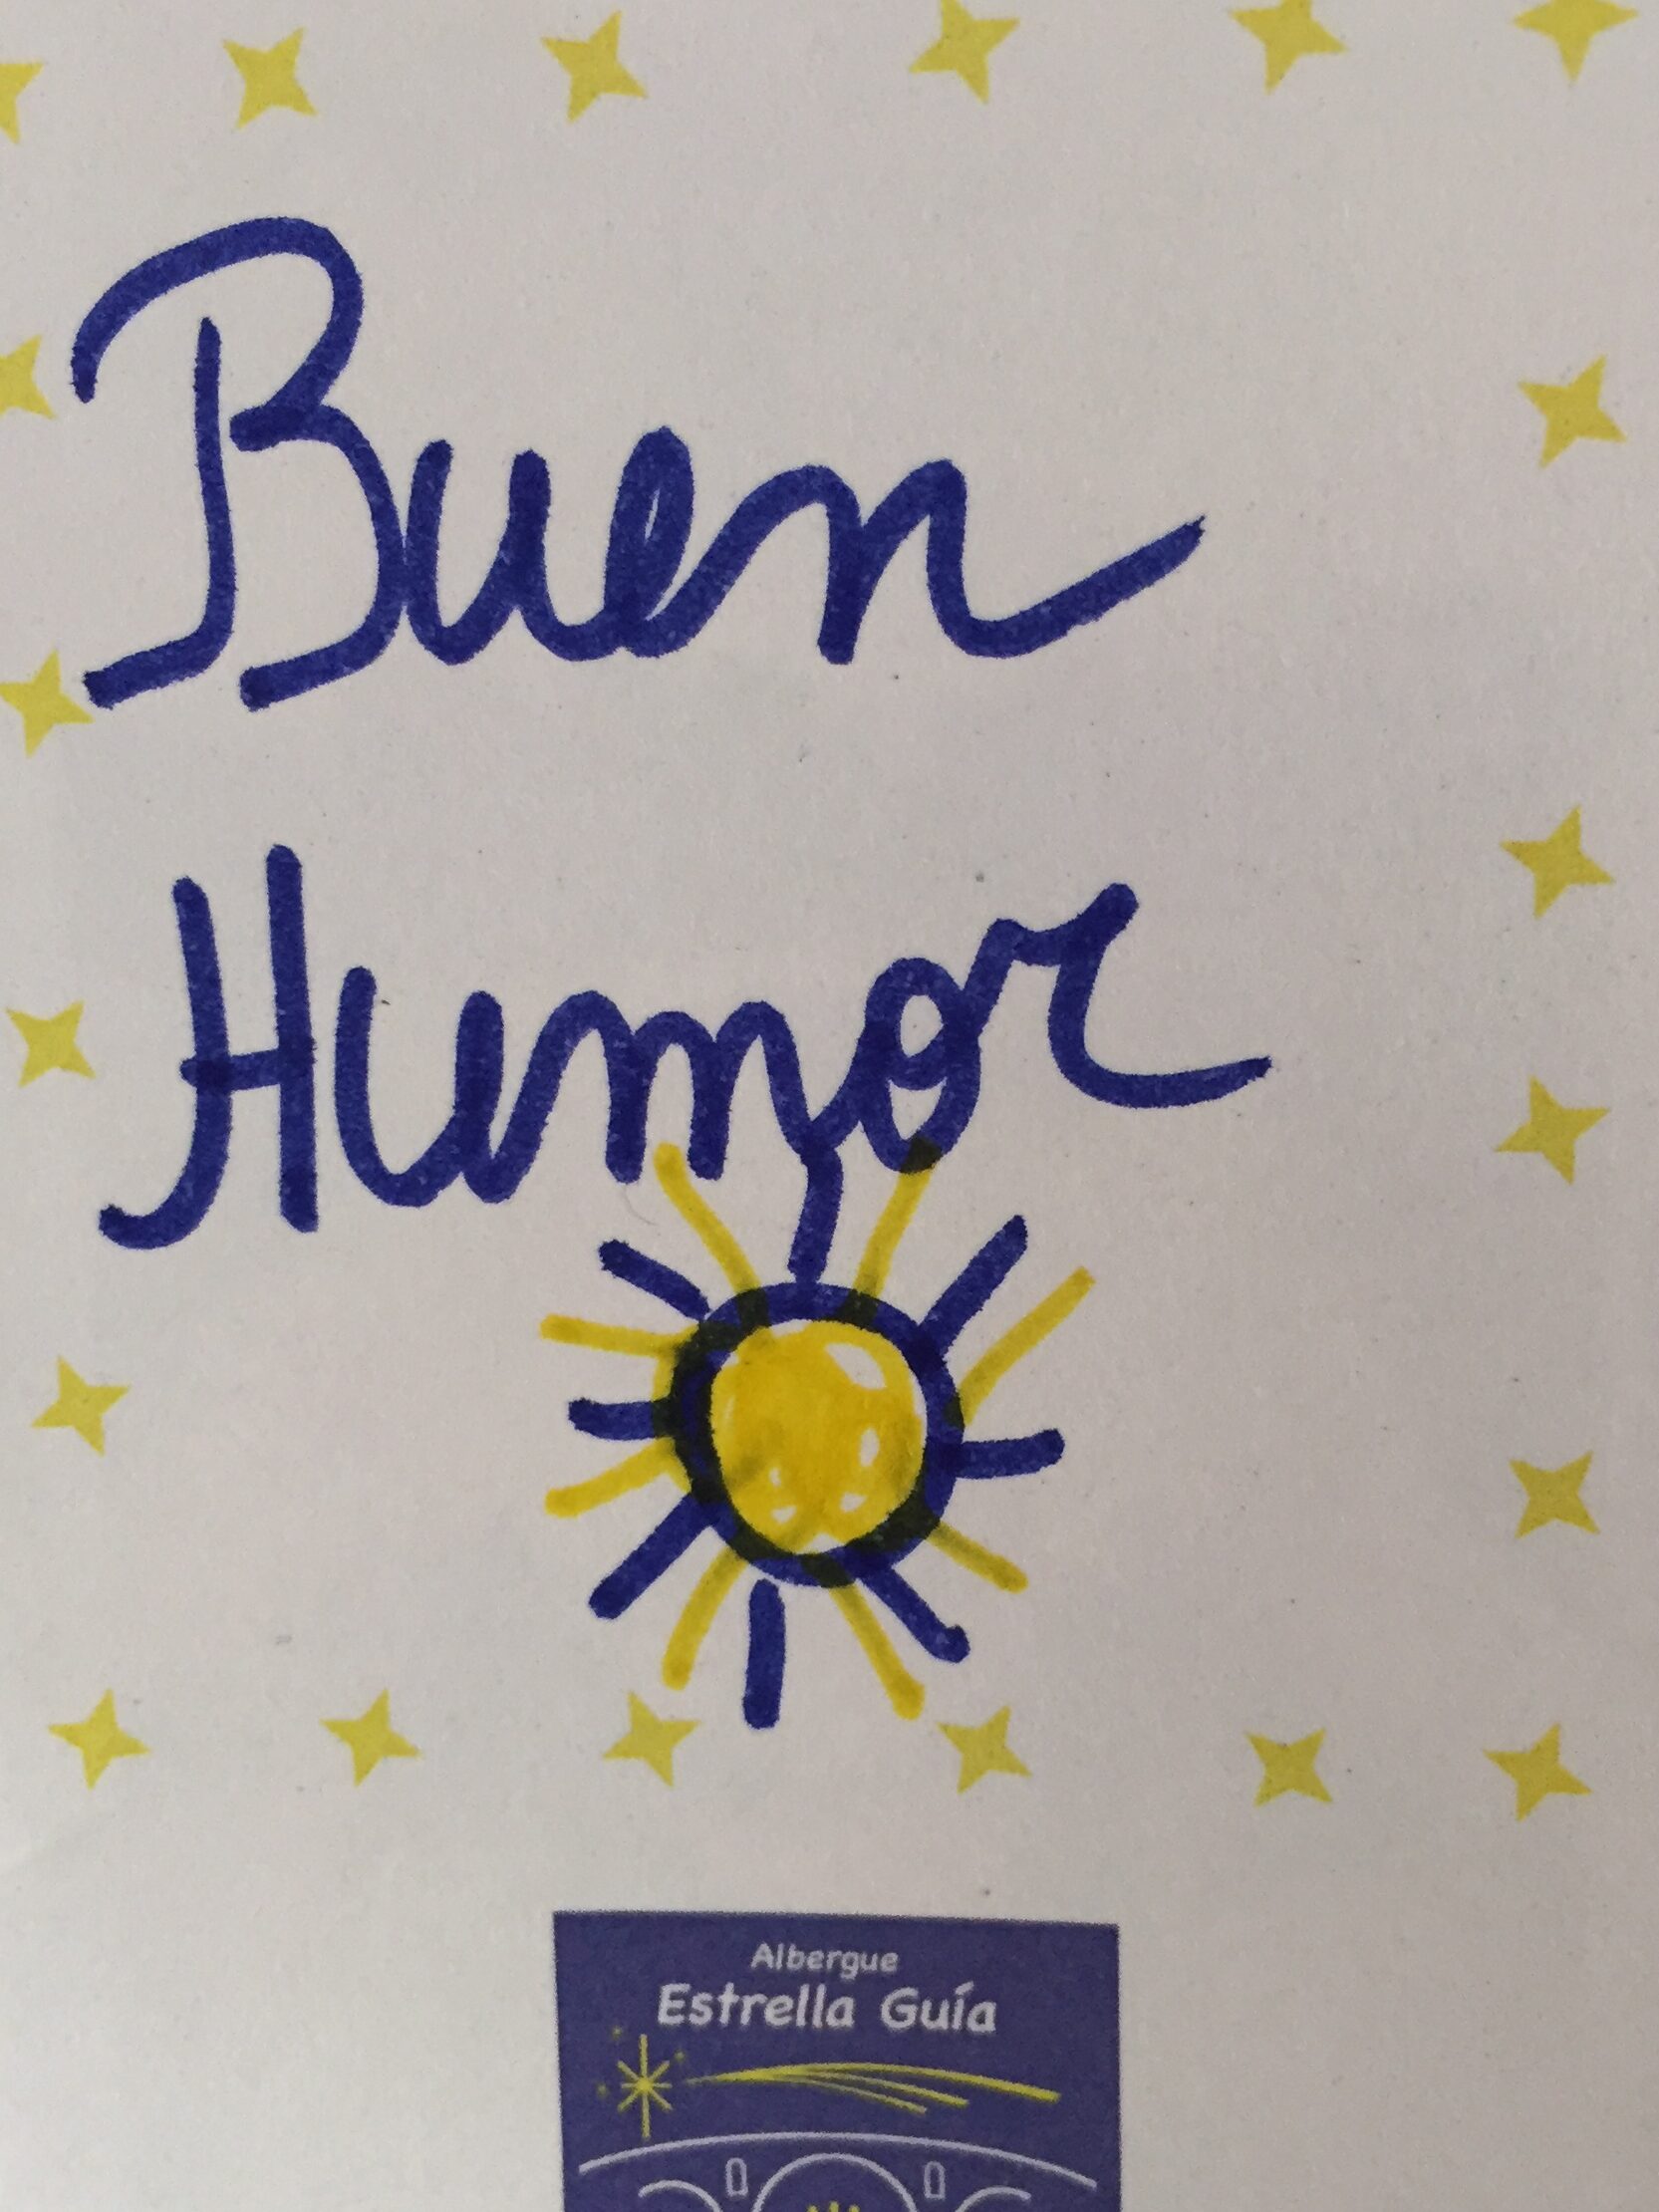 Buen
Humor
Albergue
Estrella Guía